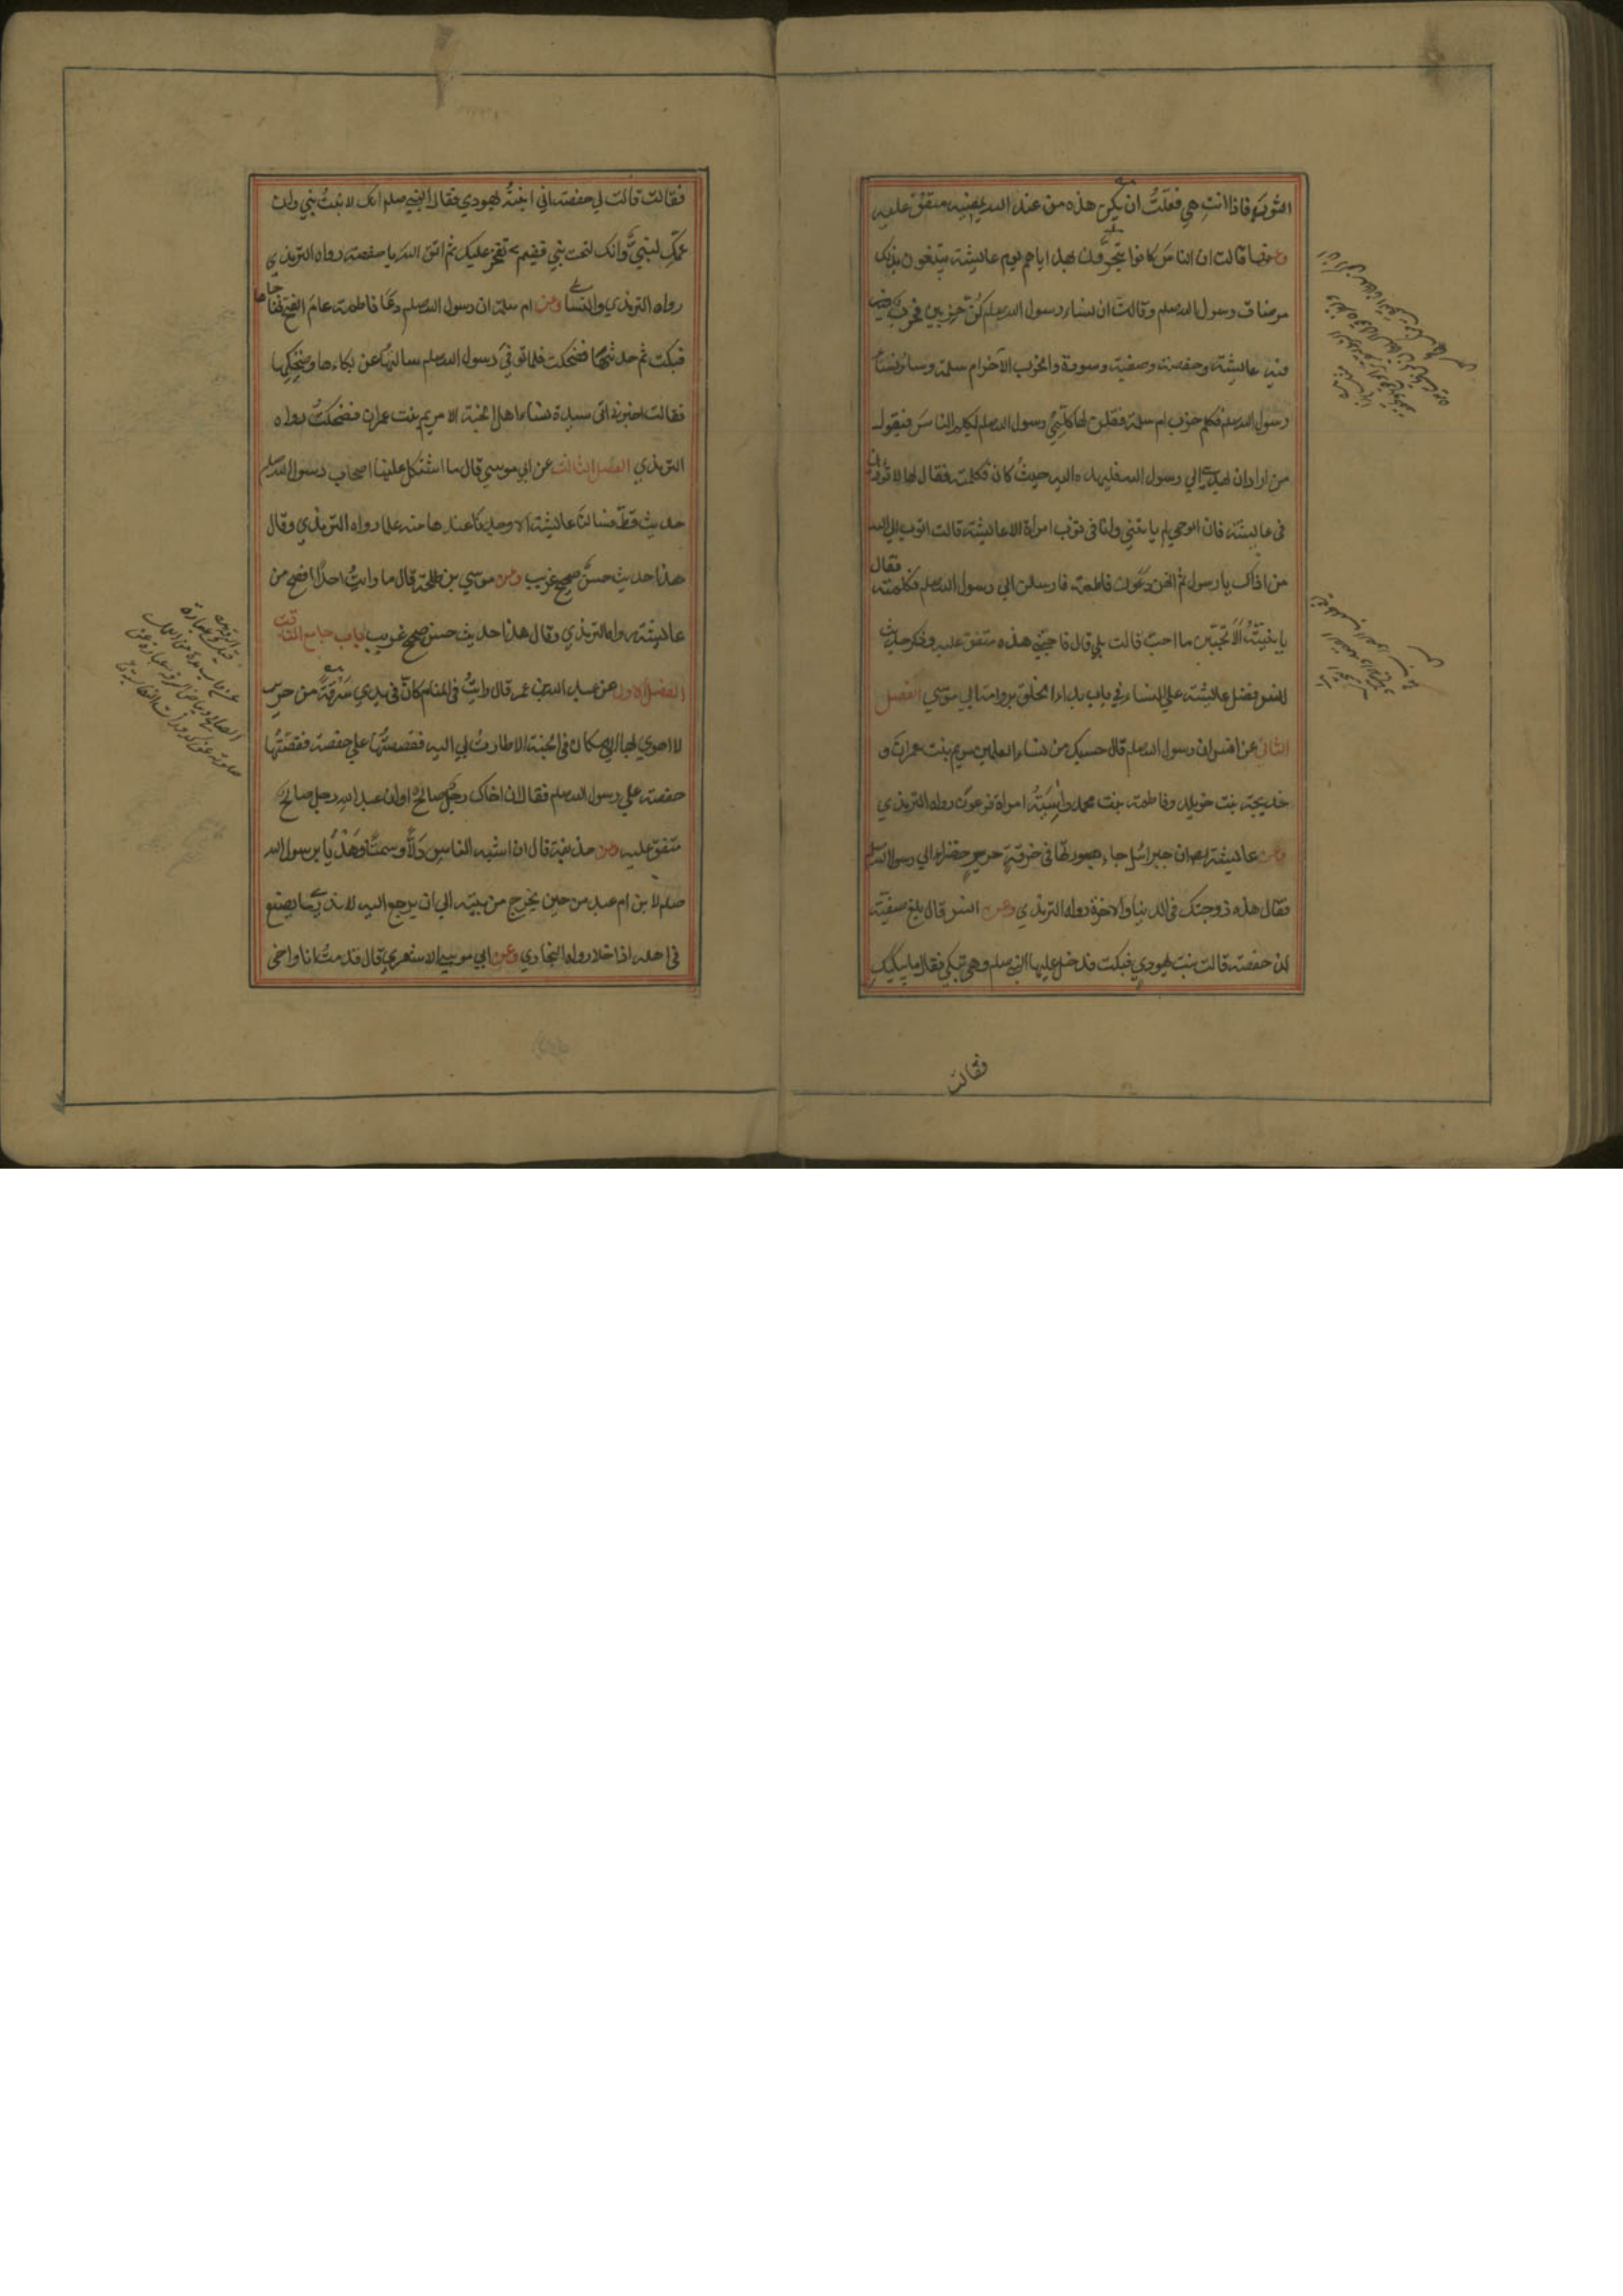 الثوب فاذا انت هي فقلت ان يكن هذه من عند الله يمضه متفق عليه
وعنها قالت ان الناس كانوا يتحرون بهداياهم يوم عايشة يبتغون بذلك
مرضات رسول الله صلم وقالت ان نساء رسول الله صلم كن حزبين فحزب
فيه عايشة وحفصة وصفية وسودة والحزب الآخر ام سلمة وساير نساء
رسول الله صلم فكلم حزب ام سلمة فقلن لها كلمي رسول الله صلم يكلم الناس فيقول
من اراد ان يهدي الي رسول الله فليهده اليه حيث كان فكلمته فقال لها لا توذيني
في عايشة فان الوحي لم ياتني وانا في ثوب امراة الا عايشة قالت اتوب الي الله
من اذاك يا رسول ثم انهن دعون فاطمة فارسلن الي رسول الله صلم فكلمته فقال
يا بنية الا تحبين ما احب قالت بلي قال فاحبي هذه متفق عليه وذكر حديث
انس فضل عايشة علي النساء في باب بدا الخلق برواية ابي موسي الفصل
الثاني عن انس ان رسول الله صلم قال حسبك من نساء العلمين مريم بنت عمران و
خديجة بنت خويلد وفاطمة بنت محمد واسية امراة فرعون رواه الترمذي
وعن عايشة ان جبرائيل جاء بصورتها في خرقة حرير خضراء الي رسول الله صلم
فقال هذه زوجتك في الدنيا والاخرة رواه الترمذي وعن انس قال بلغ صفية
ان حفصة قالت بنت يهودي فبكت فدخل عليها النبي صلم وهي تبكي فقال ما يبكيك
فقالت
فقالت قالت لي حفصة اني ابنة يهودي فقال النبي صلم انك لابنت نبي وان
عمك لنبي وانك لتحت نبي ففيم تفخر عليك ثم اتق الله يا حفصة رواه الترمذي
رواه الترمذي والنسا وعن ام سلمة ان رسول الله صلم دعا فاطمة عام الفتح فناجاها
فبكت ثم حدثها فضحكت فلما توفي رسول الله صلم سالتها عن بكاءها وضحكها
فقالت اخبرني اني سيدة نساء اهل الجنة الا مريم بنت عمران فضحكت رواه
الترمذي الفصل الثالث عن ابي موسي قال ما اشتكل علينا اصحاب رسول الله صلم
حديث قط فسالنا عايشة الا وجدنا عندها منه علما رواه الترمذي وقال
هذا حديث حسن صحيح غريب وعن موسي بن طلحة قال ما رايت احدا افصح من
عايشة رواه الترمذي وقال هذا حديث حسن صحيح غريب باب جامع المناقب
الفصل الاول عن عبد الله بن عمر قال رايت في المنام كان في يدي سرقة من حرير
لا اهوي بها الي مكان في الجنة الا طارت بي اليه فقصصتها علي حفصة فقصتها
حفصة علي رسول الله صلم فقال ان اخاك رجل صالح او ان عبد الله رجل صالح
متفق عليه وعن حذيفة قال ان اشبه الناس دلا وسمتا وهديا برسول الله
صلم لابن ام عبد من حين يخرج من بيته الي ان يرجع اليه لا ندري ما يصنع
في اهله اذا خلا رواه البخاري وعن ابي موسي الاشعري قال قدمت انا واخي